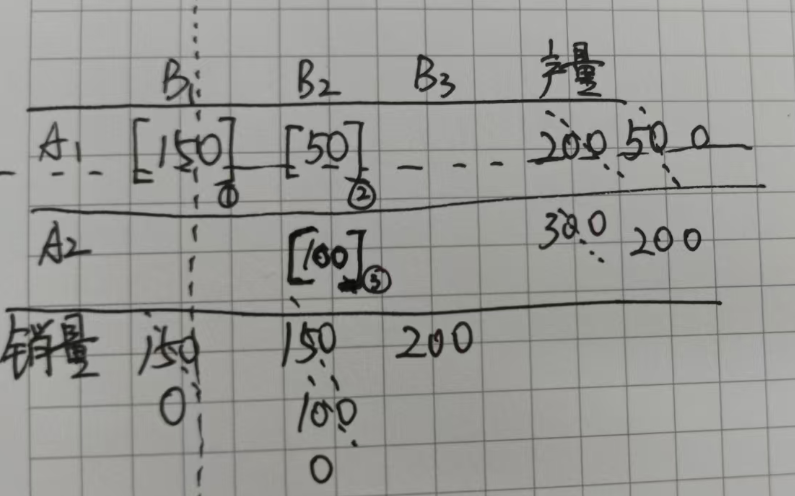 B1 B2 B3 产量
A1 [150] ① [50] ② 200 50 0
A2 [100] ③ 300 200
销量 150 150 200
0 100
0